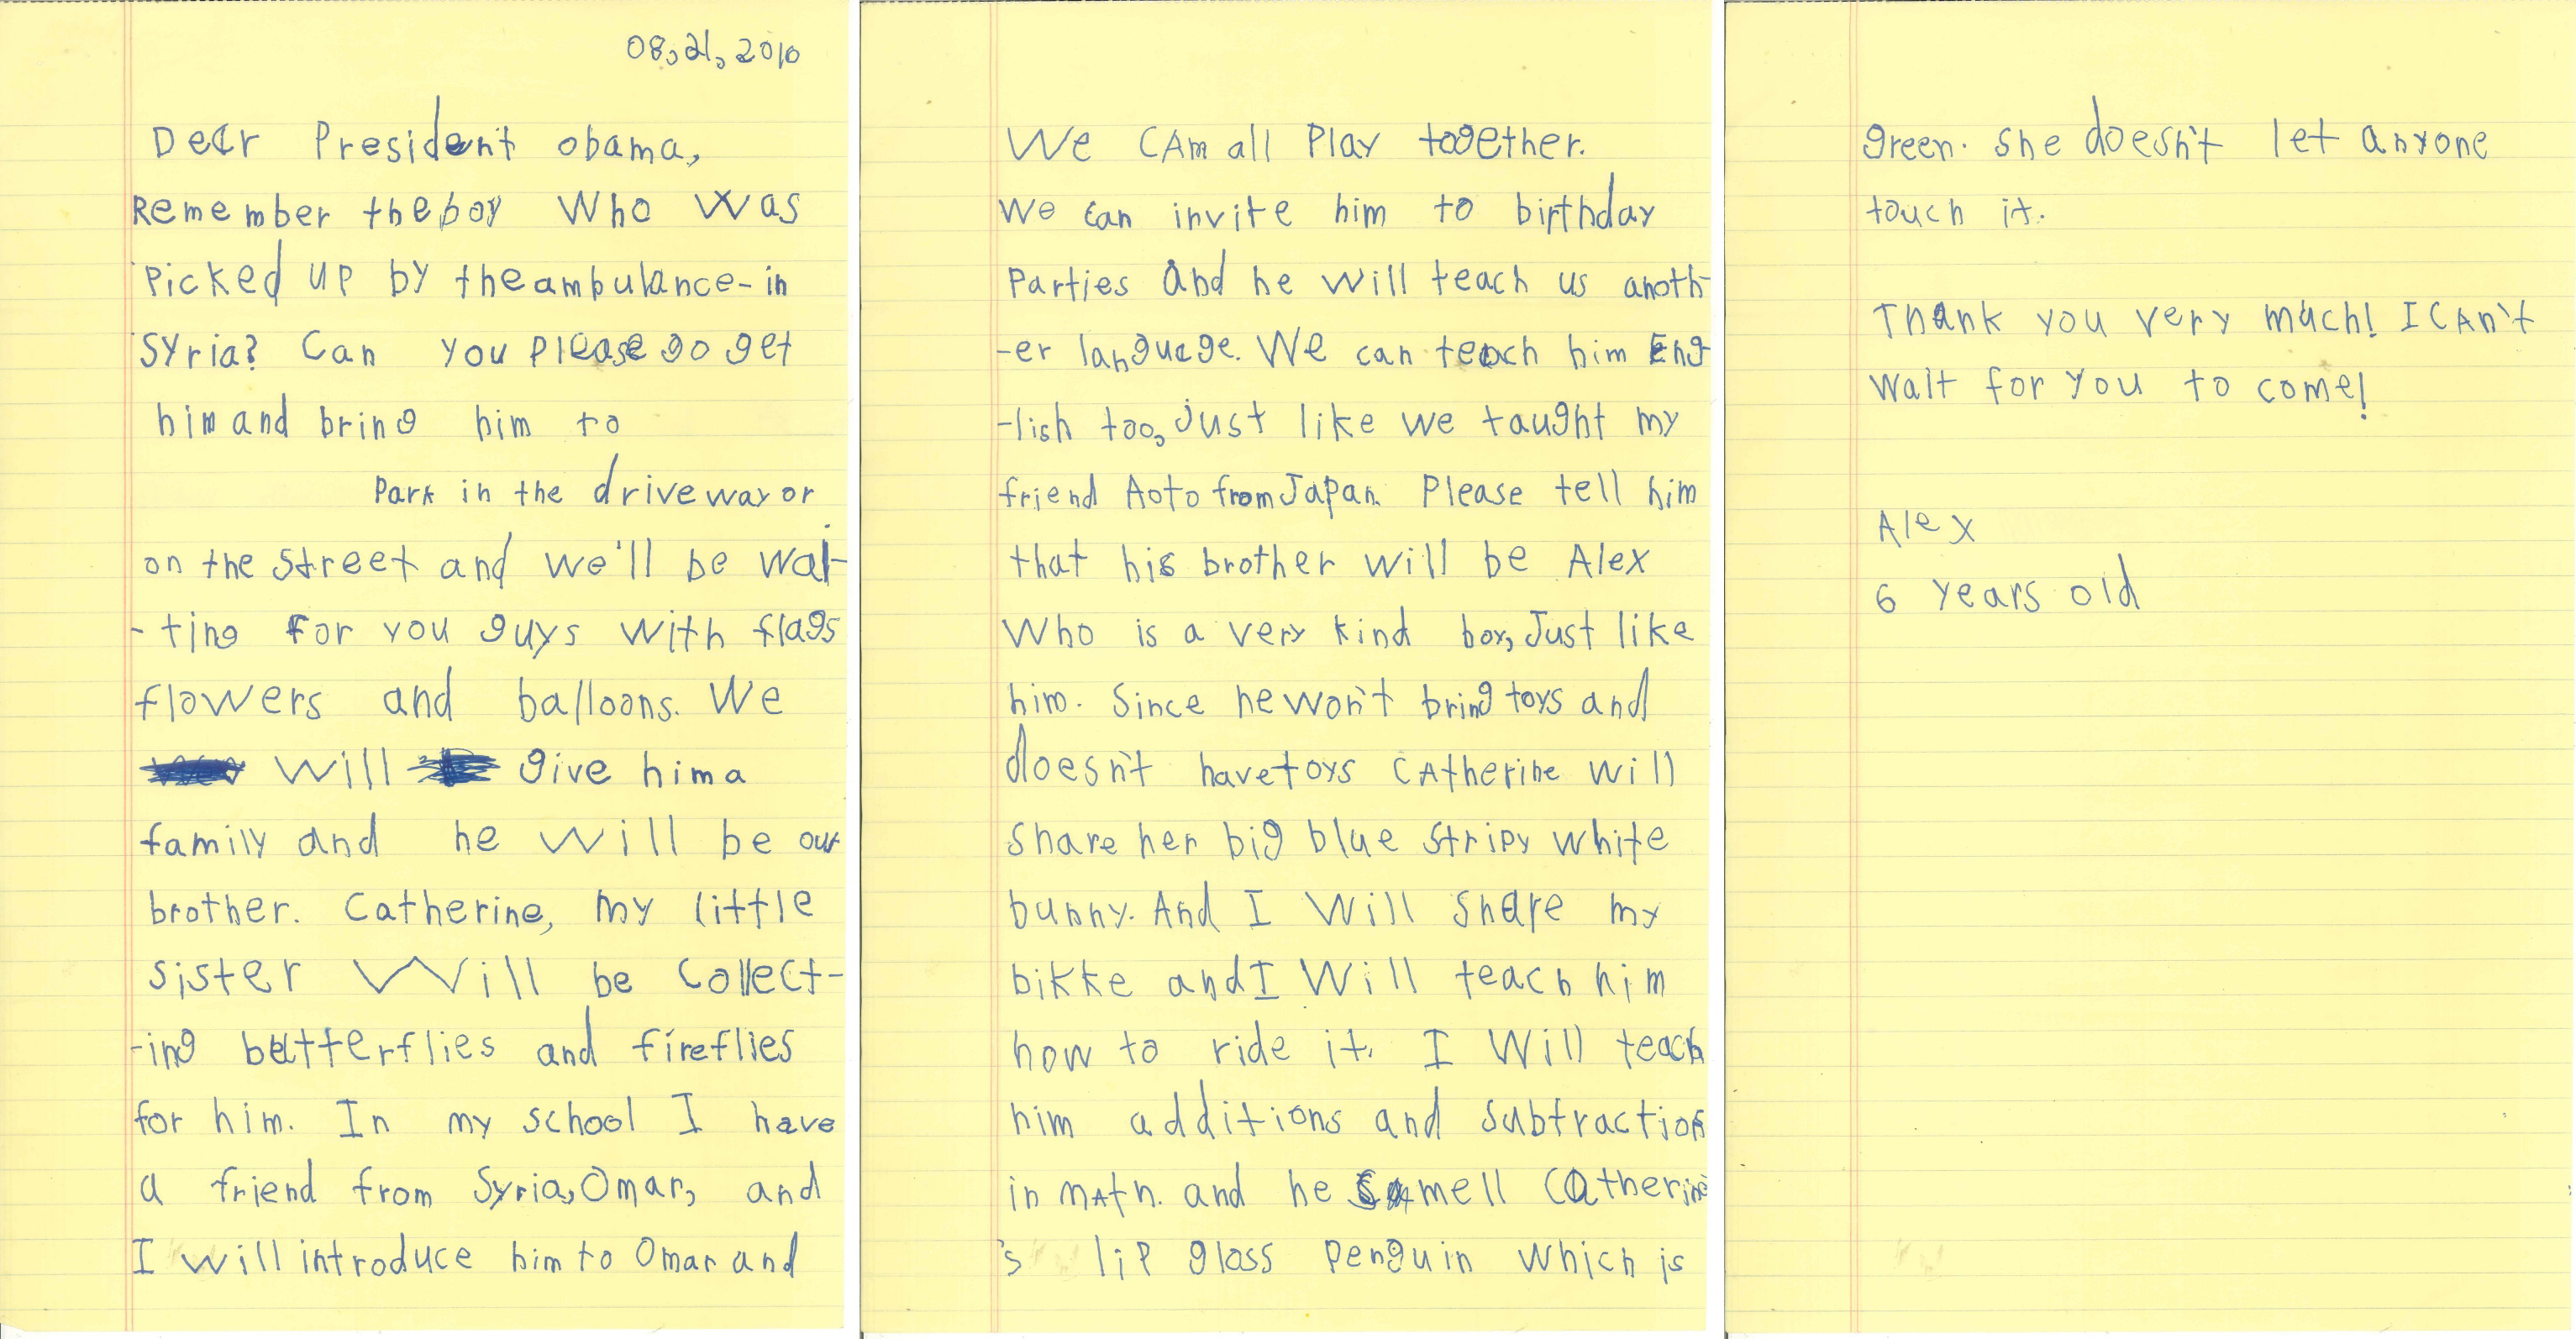 08,21,2010
Dear President obama,
Remember the boy who was
Picked up by the ambulance-in
Syria? Can you please go get
him and bring him to
Park in the driveway or
on the street and we'll be wai-
-ting for you guys with flags
flowers and balloons. We
will give him a
family and he will be our
brother. Catherine, my little
sister will be collect-
-ing butterflies and fireflies
for him. In my school I have
a friend from Syria, Omar, and
I will introduce him to Omar and
We CAm all Play together.
We can invite him to birthday
Parties and he will teach us anoth-
-er language. We can teach him Eng
-lish too, just like we taught my
friend Aoto from Japan. Please tell him
that his brother will be Alex
Who is a very kind boy, Just like
him. Since he won't bring toys and
doesn't have toys CAtherine will
share her big blue stripy white
bunny. And I will share my
bikke and I will teach him
how to ride it. I will teach
him additions and subtraction
in mAth. and he smell Catherine
's lip gloss penguin which is
green. she doesn't let anyone
touch it.
Thank you very much! I CAn't
wait for you to come!
Alex
6 years old